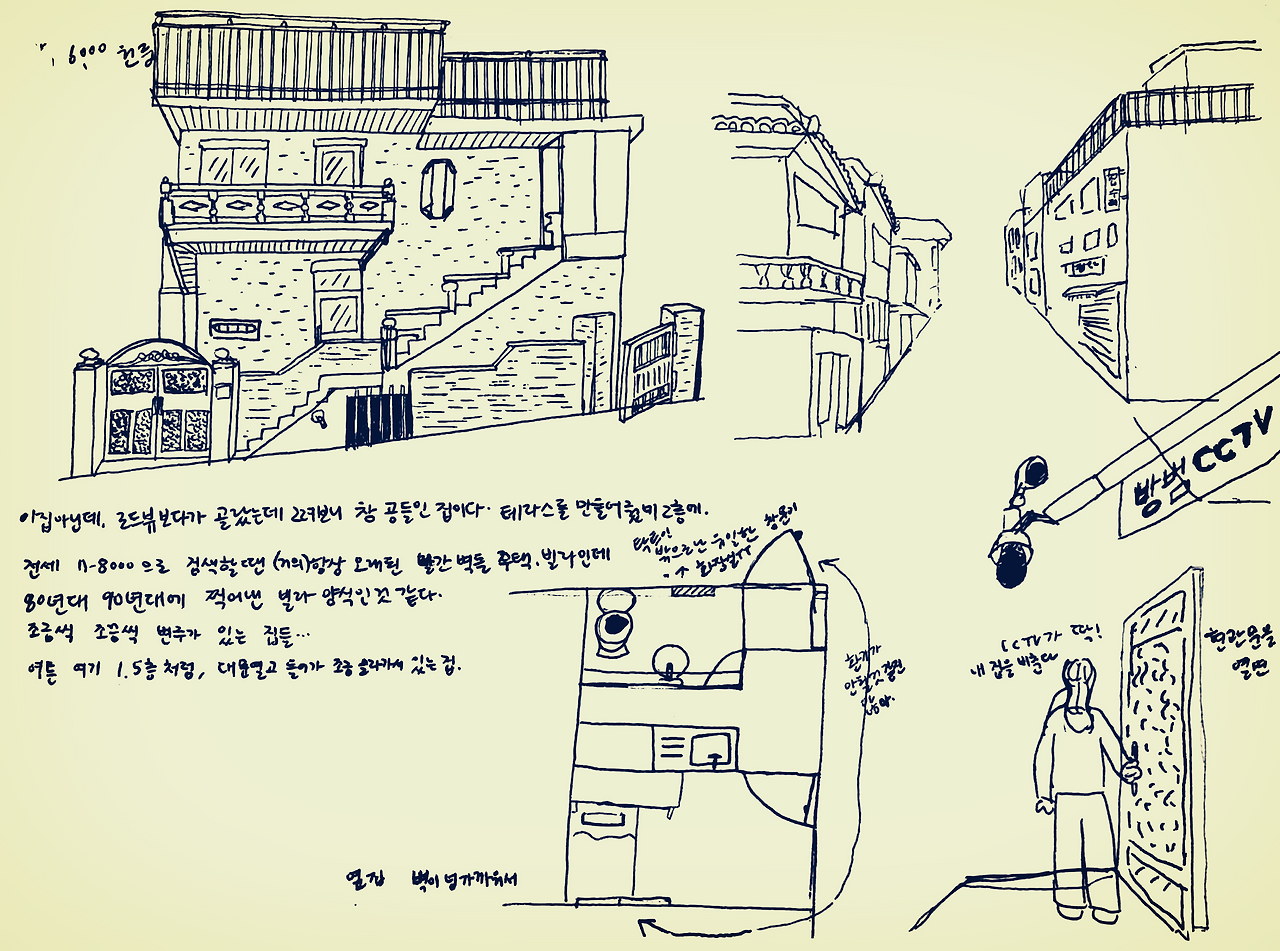 6000 원룸
이집아닌데, 로드뷰보다가 골랐는데 그리보니 참 공들인 집이다. 테라스를 만들어 2층에.
전세 n-8000으로 검색할땐 (거의)항상 오래된 빨간벽돌 주택, 빌라인데
80년대 90년대에 찍어낸 빌라 양식인것 같다.
조금씩 조금씩 변주가 있는 집들...
여튼 여기 1.5층처럼, 대문열고 들어가 조금 올라가서 있는 집.
밖으로난 유일한 창문이
화장실
환기가
안될것 같은
방범 CCTV
CCTV가 딱!
내 집을 비춘다
현관문을
열면
옆집 벽이 넘 가까워서